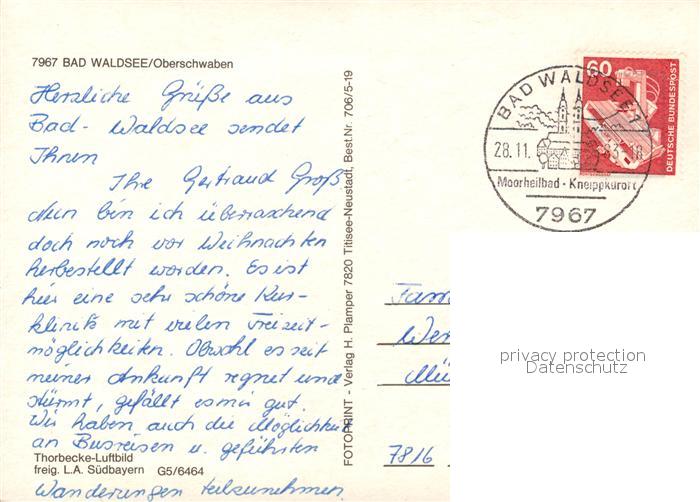 7967 BAD WALDSEE/Oberschwaben
Herzliche Grüße aus
Bad-Waldsee sendet
Ihnen
Ihre Gertraud Groß
Nun bin ich überraschend
doch noch vor Weihnachten
herbestellt worden. Es ist
hier eine sehr schöne Kur-
klinik mit vielen Freizeit-
möglichkeiten. Obwohl es seit
meiner Ankunft regnet und
stürmt, gefällt es mir gut.
Wir haben auch die Möglichkeit
an Busreisen u. geführten
Wanderungen teilzunehmen
Thorbecke-Luftbild
freig. L.A. Südbayern G5/6464
FOTOPRINT - Verlag H. Plamper 7820 Titisee-Neustadt, Best.Nr. 706/5-19
60
DEUTSCHE BUNDESPOST
BAD WALDSEE 1
28.11. 83.-18
Moorheilbad · Kneippkurort
7967
Fam
Wer
Mü
7816
privacy protection
Datenschutz